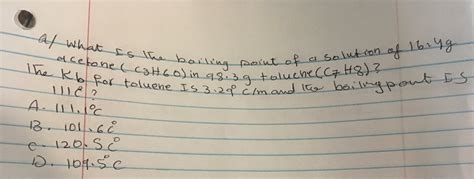 a/ What Is the boiling point of a solution of 16.4g
acetone (C3H60) in 98.3g toluene (C7H8)?
The Kb for toluene Is 3.29°c/m and the boiling point Is
111c°?
A. 111.1°c
B. 101.6c°
c. 120.5c°
D. 109.5°C